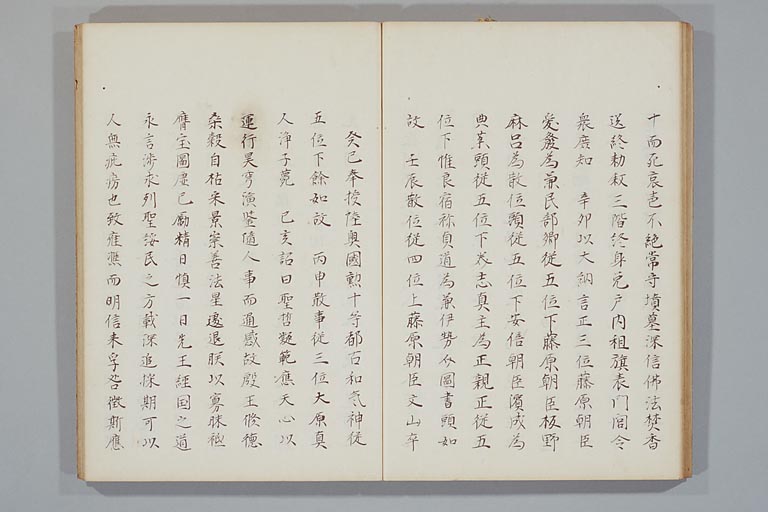 十而死哀志不絶常守墳墓深信佛法焚香
送終勅叙三階終身免戸内租旗表門閭令
衆庶知　辛卯以大納言正三位藤原朝臣
愛發為兼民部卿從五位下藤原朝臣板野
麻呂為散位頭從五位下安倍朝臣濱成為
典藥頭從五位下卷志真主為正親正從五
位下惟良宿祢貞道為兼伊勢介圖書頭如
故　壬辰散位從四位上藤原朝臣文山卒
癸巳奉授陸奥國勲十等都古和気神從
五位下餘如故　丙申散事從三位大原真
人浄子薨　己亥詔曰聖哲凝範應天心以
運行昊穹演鑒随人事而通感故殷王脩德
桒穀自枯宋景崇善法星邊退朕以寡昧祗
膺宝圖虚己勵精日慎一日先王經國之道
永言渉求列聖綏民之方載深追採期可以
人無疵癘也致雍熈而明信未孚咎徴斯應